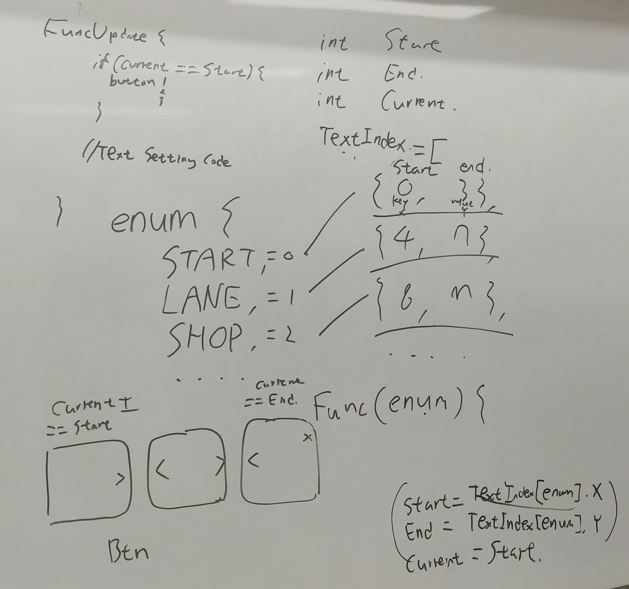 FuncUpdate {
if (Current == Start) {
button !
}
}
//Text Setting Code
}
int Start
int End.
int Current.
TextIndex = [
Start end.
{ 0, 3},
key, value
{4, n},
{8, n},
. . . .
enum {
START, = 0
LANE, = 1
SHOP, = 2
. . . . .
Current I
== Start
Current
== End.
> < > < x
Btn
Func(enum) {
Start = TextIndex[enum].X
End = TextIndex[enum].Y
Current = Start.